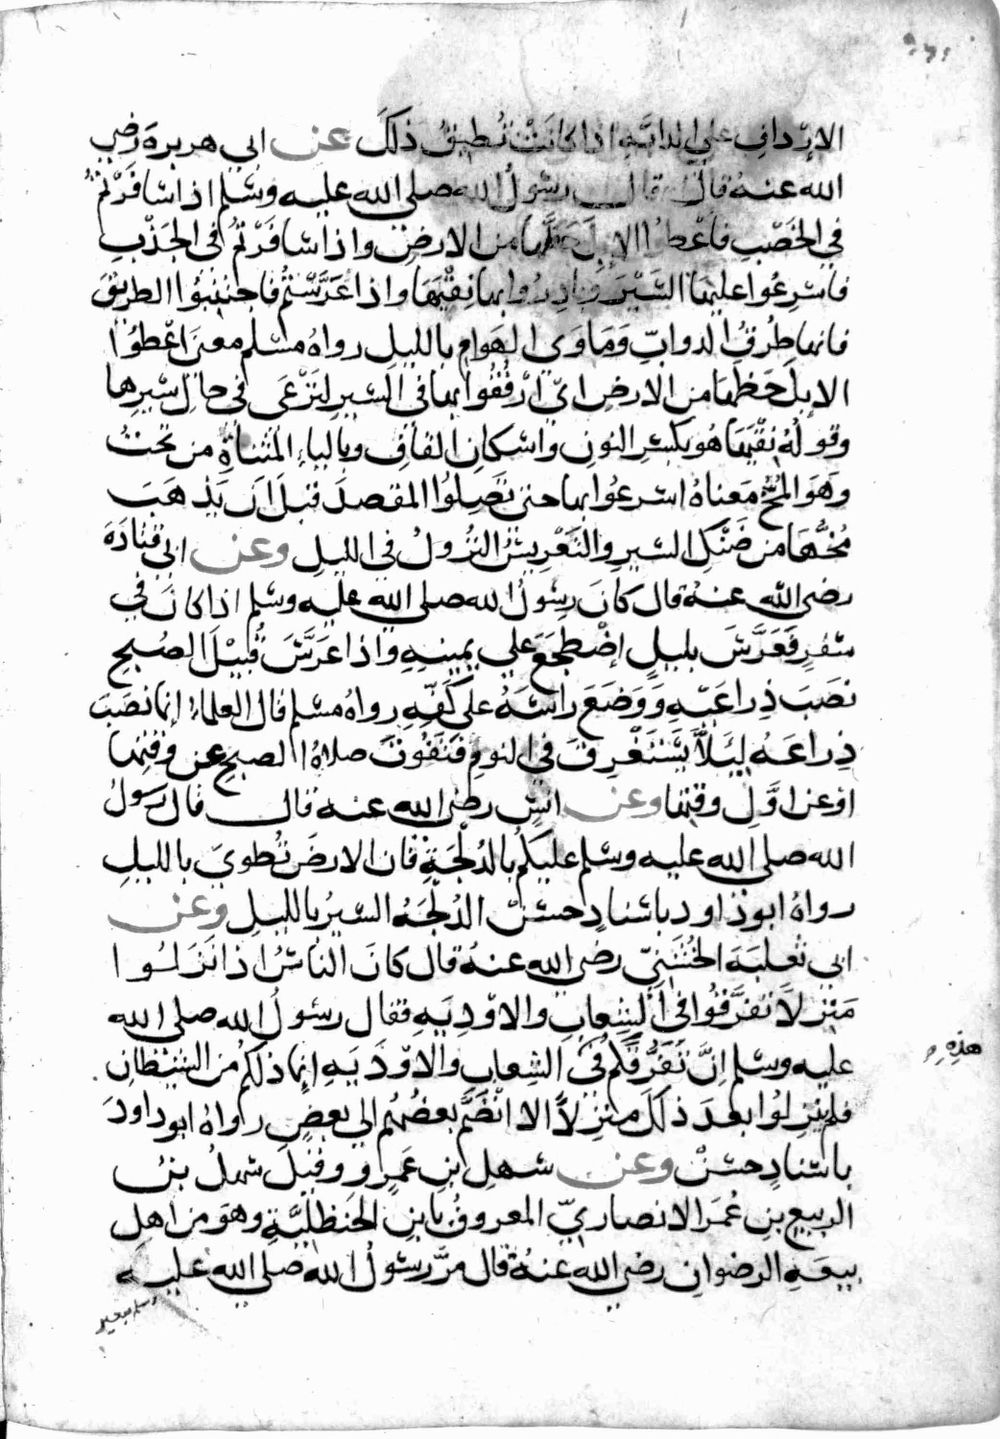 الارداف علي الدابة اذا كانت تطيق ذلك عن ابي هريرة رضي
الله عنه قال قال رسول الله صلى الله عليه وسلم اذا سافرتم
في الخصب فاعطوا الابل حظها من الارض واذا سافرتم في الجدب
فاسرعوا عليها السير وبادروا بها نقيها واذا عرستم فاجتنبوا الطريق
فانها طرق الدواب وماوى الهوام بالليل رواه مسلم معنى اعطوا
الابل حظها من الارض اي ارفقوا بها في السير لترعى في حال سيرها
وقوله نقيها هو بكسر النون واسكان القاف وبالياء المثناة من تحت
وهو المخ معناه اسرعوا بها حتى تصلوا المقصد قبل ان يذهب
مخها من ضنك السير والتعريس النزول في الليل وعن ابي قتادة
رضي الله عنه قال كان رسول الله صلى الله عليه وسلم اذا كان في
سفر فعرس بليل اضطجع علي يمينه واذا عرس قبيل الصبح
نصب ذراعيه ووضع راسه على كفه رواه مسلم قال العلماء انما نصب
ذراعه ليلا يستغرق في النوم فتفوت صلاة الصبح عن وقتها
او عن اول وقتها وعن انس رضي الله عنه قال قال رسول
الله صلى الله عليه وسلم عليكم بالدلجة فان الارض تطوى بالليل
رواه ابو داود باسناد حسن الدلجة السير بالليل وعن
ابي ثعلبة الخشني رضي الله عنه قال كان الناس اذا نزلوا
منزلا تفرقوا في الشعاب والاودية فقال رسول الله صلى الله
عليه وسلم ان تفرقكم في الشعاب والاودية انما ذلكم من الشيطان
هذه
فلم ينزلوا بعد ذلك منزلا الا انضم بعضهم الى بعض رواه ابو داود
باسناد حسن وعن سهل ابن عمرو وقيل سهل بن
الربيع بن عمر الانصاري المعروف بابن الحنظلية وهو من اهل
بيعة الرضوان رضي الله عنه قال مر رسول الله صلى الله عليه
وسلم ببعير